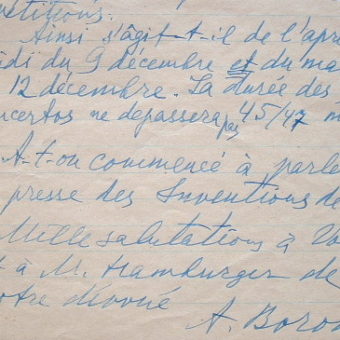 Ainsi s'âgit-t-il de l'apr
di du 9 décembre et du ma
12 décembre. La durée des
certos ne depassera pas 45/47 m
A-t-on commencé à parle
presse des Inventions de
Mille salutations à Vo
à Mr. Hamburger de
otre dévoué
A. Boro